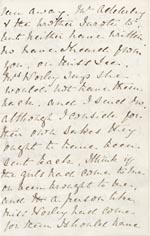 ran away. Mr Adderley
& her brother wrote to
but neither have written
no have I heard from
you, or Miss Lee.
Mrs Worley says she
would not have them
back, and I send no
although I consider for
their own sakes they
ought to have been
sent back. I think if
the girls had come to me
or been brought to me,
and as a person like
Miss Worley had come
for them I should have